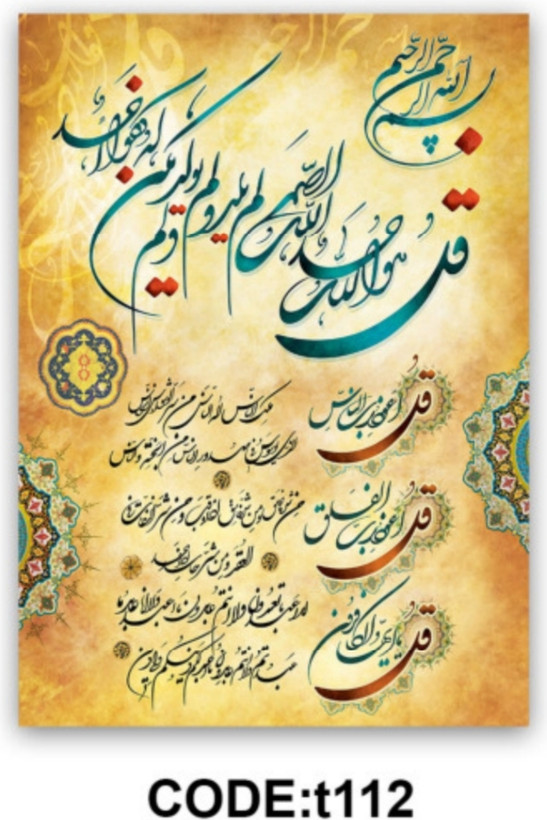 بسم الله الرحمن الرحیم
قل هو الله احد الله الصمد لم یلد ولم یولد ولم یکن له کفوا احد
قل اعوذ برب الناس
ملک الناس اله الناس من شر الوسواس الخناس
الذی یوسوس فی صدور الناس من الجنة والناس
قل اعوذ برب الفلق
من شر ما خلق ومن شر غاسق اذا وقب ومن شر النفاثات فی
العقد ومن شر حاسد اذا حسد
قل یا ایها الکافرون
لا اعبد ما تعبدون ولا انتم عابدون ما اعبد ولا انا عابد ما
عبدتم ولا انتم عابدون ما اعبد لکم دینکم ولی دین
CODE:t112